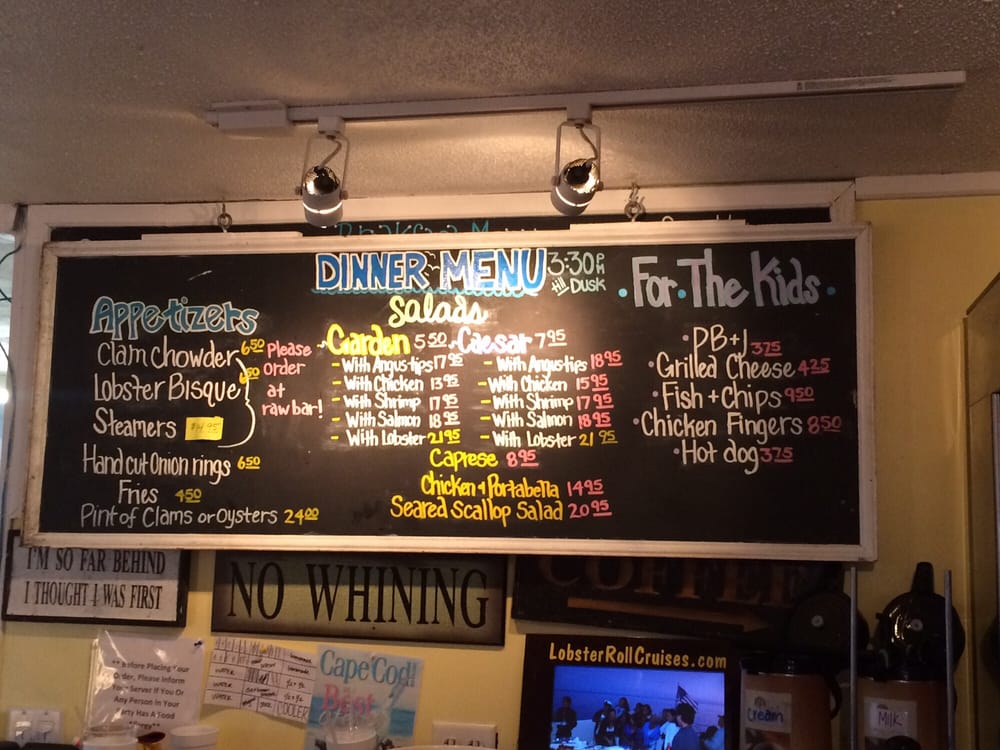 Breakfast
DINNER MENU 3:30 PM till DUSK
Appetizers
Clam chowder 6.50
Lobster Bisque 6.50
Steamers
Please order at raw bar!
Hand cut Onion rings 6.50
Fries 4.50
Pint of Clams or Oysters 24.00
Salads
Garden 5.50
- With Angus tips 17.95
- With Chicken 13.95
- With Shrimp 17.95
- With Salmon 18.95
- With Lobster 21.95
Caesar 7.95
- With Angus tips 18.95
- With Chicken 15.95
- With Shrimp 17.95
- With Salmon 18.95
- With Lobster 21.95
Caprese 8.95
Chicken + Portabella 14.95
Seared Scallop Salad 20.95
• For • The Kids •
• PB+J 3.75
• Grilled Cheese 4.25
• Fish + Chips 9.50
• Chicken Fingers 8.50
• Hot dog 3.75
I'M SO FAR BEHIND
I THOUGHT I WAS FIRST
NO WHINING
COFFEE
** Before Placing Your
Order, Please Inform
Your Server If You Or
Any Person In Your
Party Has A Food
WATER
WATER
COOLER
Cape Cod!
Best
LobsterRollCruises.com
Cream
MILK